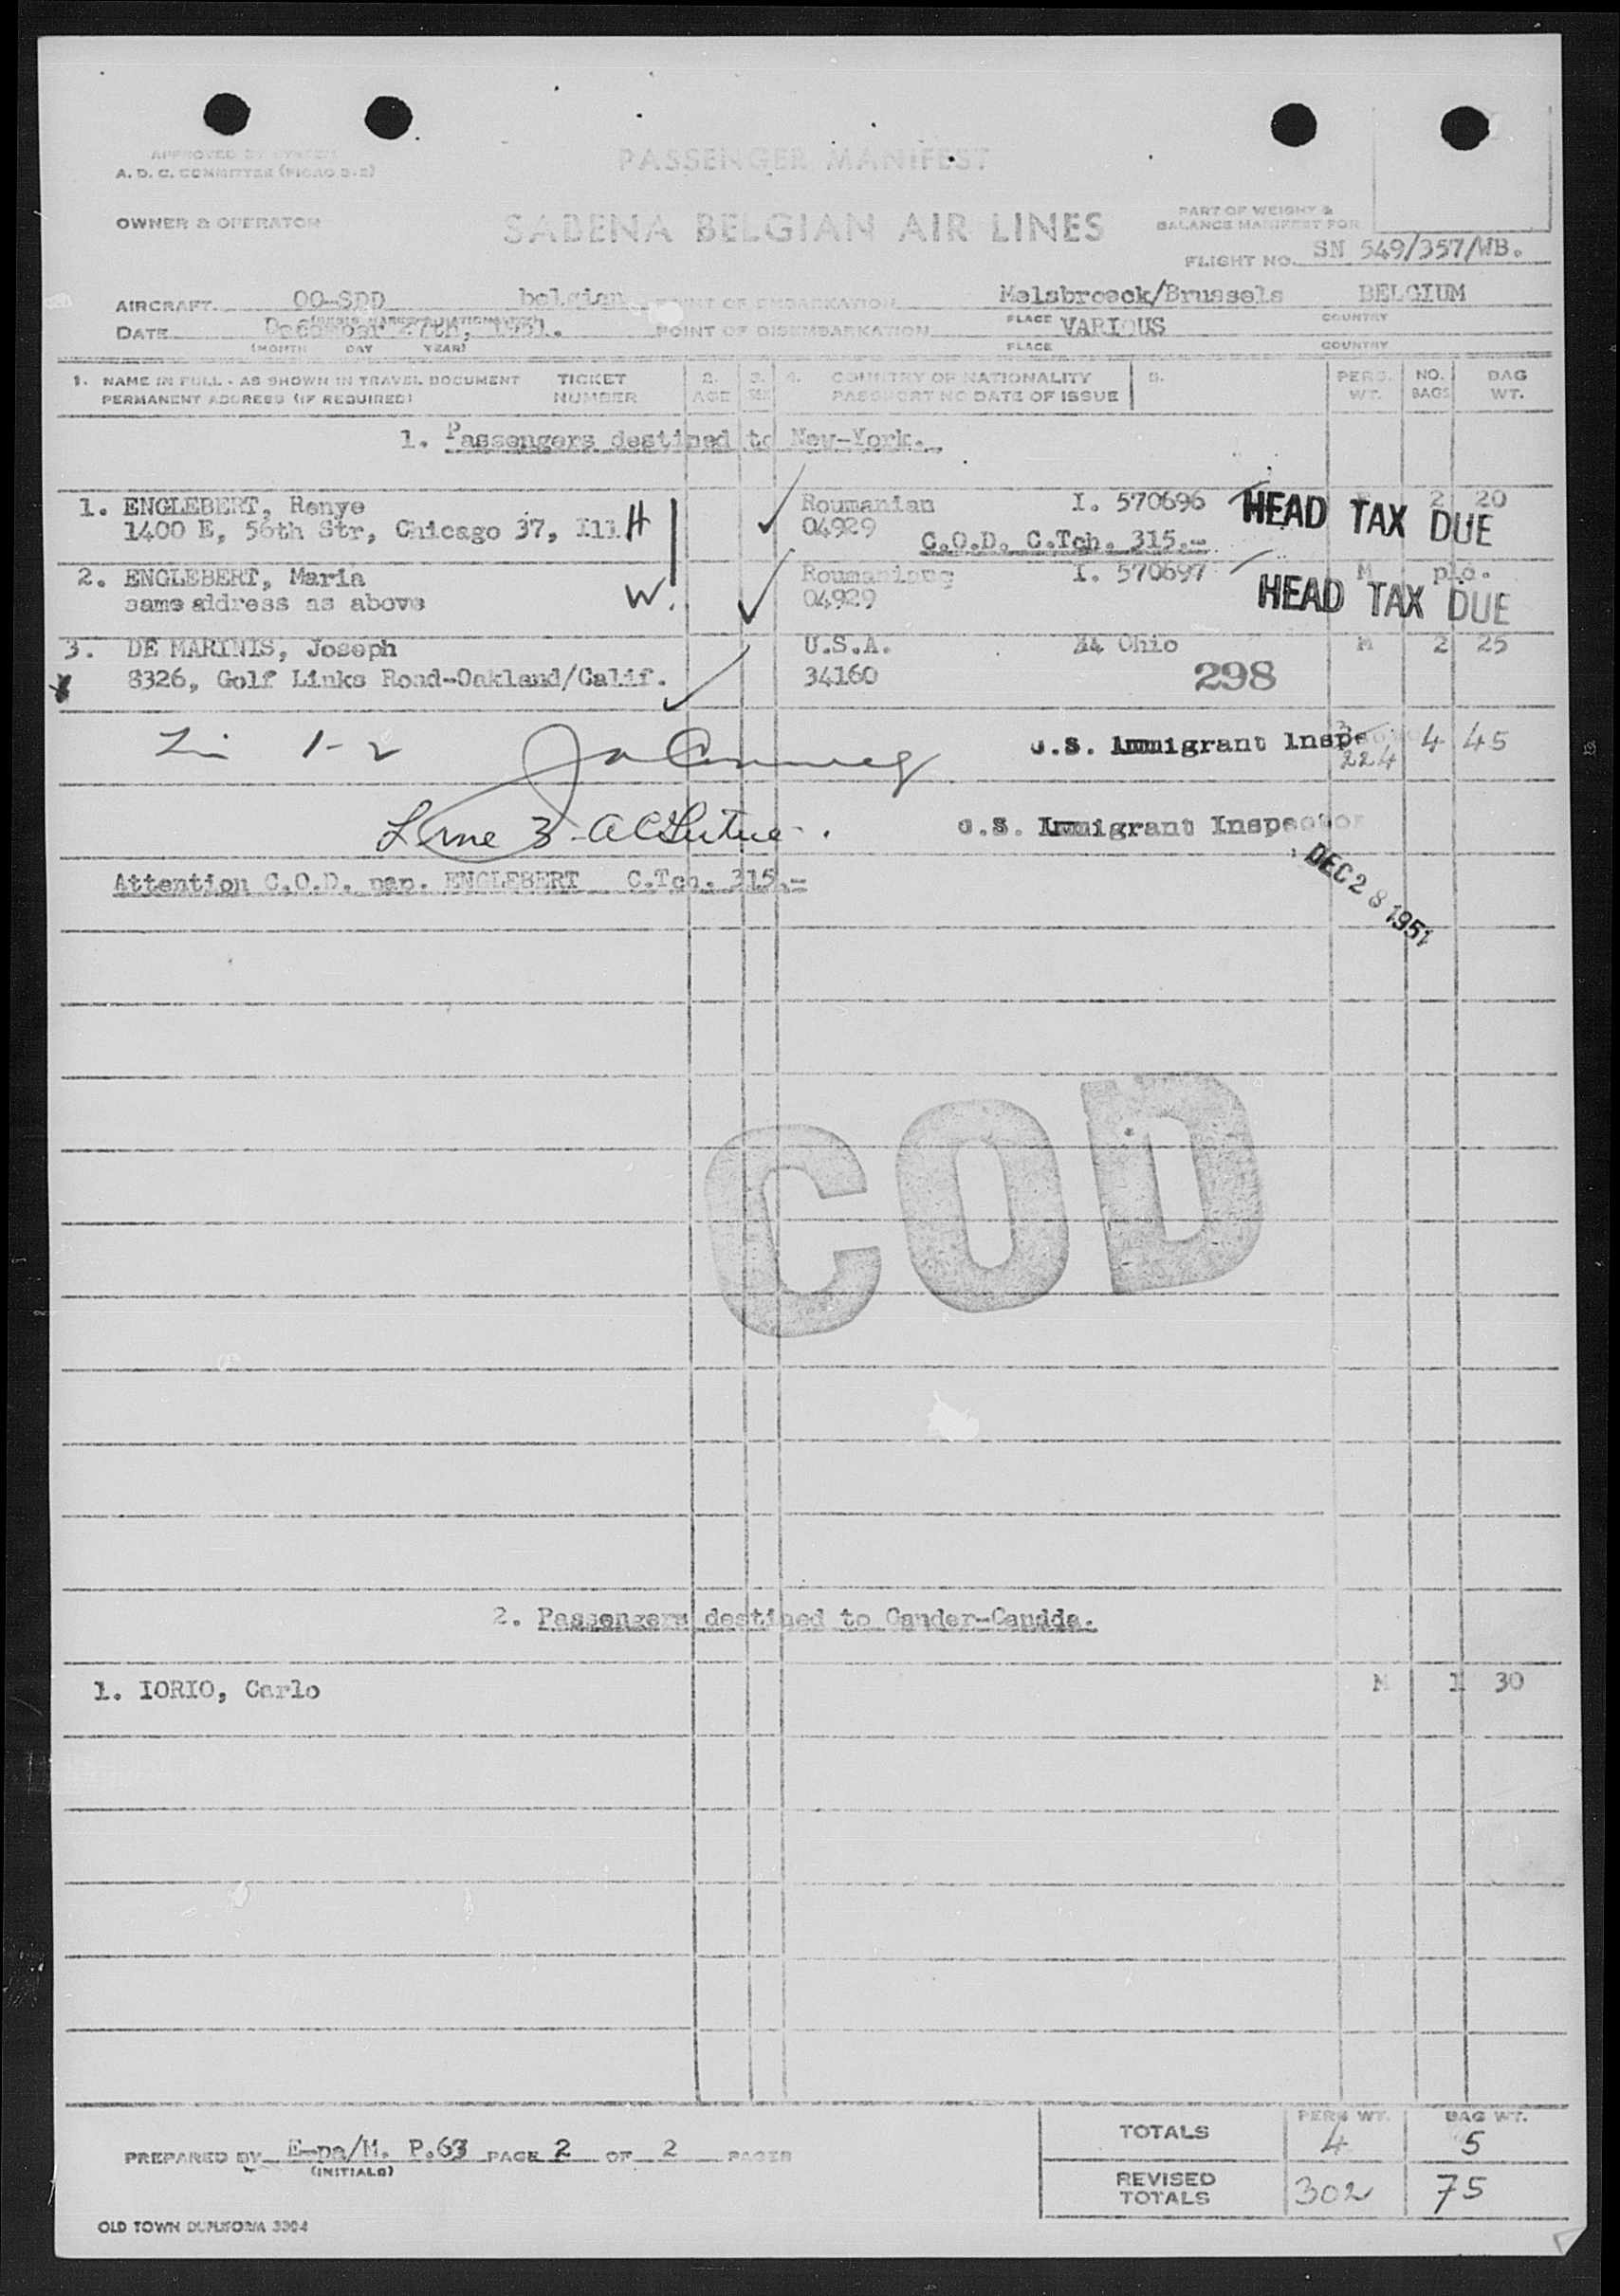 APPROVED BY SYSTEM
A. D. C. COMMITTEE (FICAO 9-2)
PASSENGER MANIFEST
OWNER & OPERATOR
SABENA BELGIAN AIR LINES
PART OF WEIGHT &
BALANCE MANIFEST FOR
FLIGHT NO. SN 549/357/WB.
AIRCRAFT OO-SDD belgian POINT OF EMBARKATION Melsbroeck/Brussels BELGIUM
DATE December 27th, 1951. POINT OF DISEMBARKATION PLACE VARIOUS COUNTRY
(MONTH DAY YEAR) PLACE COUNTRY
1. NAME IN FULL - AS SHOWN IN TRAVEL DOCUMENT TICKET 2. 3. 4. COUNTRY OF NATIONALITY 5. PERS. NO. BAG
PERMANENT ADDRESS (IF REQUIRED) NUMBER AGE SEX PASSPORT NO DATE OF ISSUE WT. BAGS WT.
1. Passengers destined to New-York.
1. ENGLEBERT, Renye Roumanian I. 570696 2 20
1400 E, 56th Str, Chicago 37, Ill H 04929 C.O.D. C.Tch. 315.-
HEAD TAX DUE
2. ENGLEBERT, Maria I. 570697 M
same address as above W. 04929
HEAD TAX DUE
3. DE MARINIS, Joseph U.S.A. Ohio M 2 25
8326, Golf Links Road-Oakland/Calif. 34160 298
1-2 U.S. Immigrant Inspe 3 4 45
224
Line 3 U.S. Immigrant Inspector
Attention C.O.D. pap. ENGLEBERT C.Tch. 315.-
DEC 28 1951
COD
2. Passengers destined to Gander-Candda.
1. IORIO, Carlo M 1 30
TOTALS PERS WT. 4 BAG WT. 5
PREPARED BY E-pa/M. P.63 PAGE 2 OF 2 PAGES
(INITIALS)
REVISED TOTALS 302 75
OLD TOWN DUPLIFORM 3304